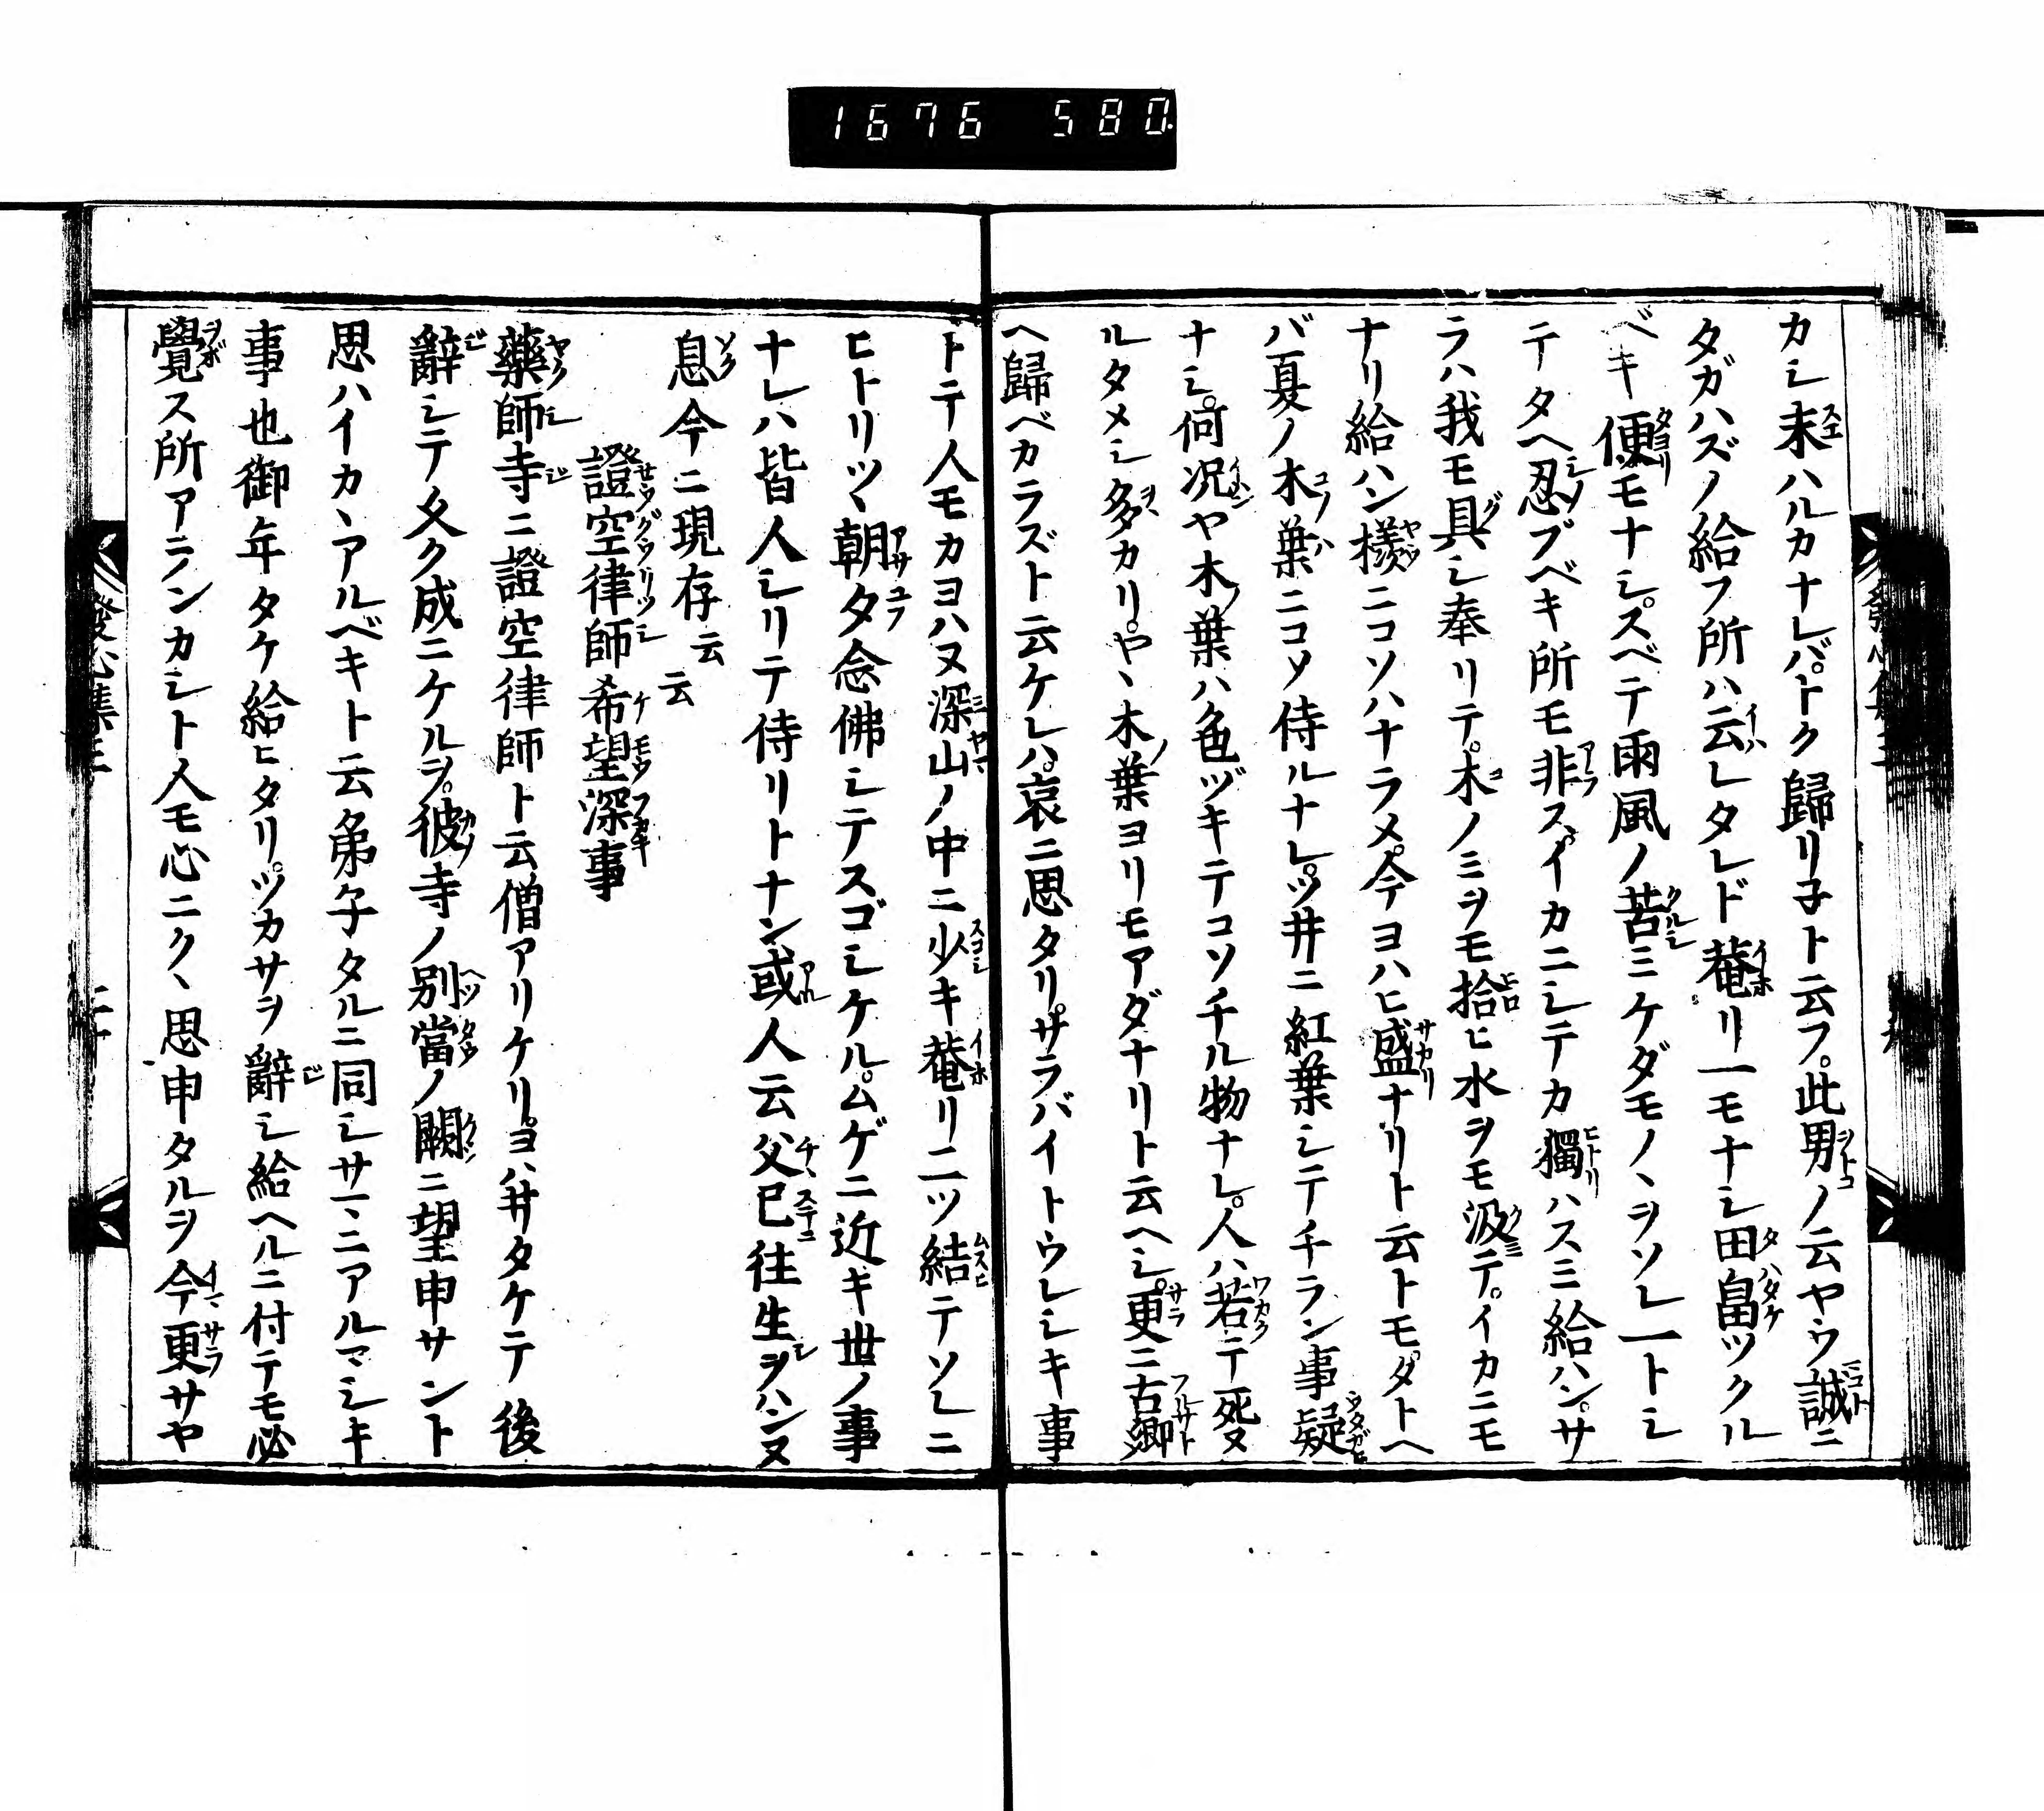 1676 580
カシ末ハルカナレバ。トク歸リ子ト云フ。此男ノ云ヤウ誠ニ
タガハズノ給フ所ハ云レタレド菴リ一モナシ田畠ツクル
ベキ便モナシ。スベテ雨風ノ苦ミケダモノヽヲソレ一トシ
テタヘ忍ブベキ所モ非ス。イカニシテカ獨ハスミ給ハン。サ
ラハ我モ具シ奉リテ。木ノミヲモ拾ヒ水ヲモ汲テ。イカニモ
ナリ給ハン樣ニコソハナラメ。今ヨハヒ盛ナリト云トモ。タトヘ
バ夏ノ木葉ニコソ侍ルナレ。ツ井ニ紅葉シテチラン事疑
ナシ。何况ヤ木葉ハ色ヅキテコソチル物ナレ。人ハ若テ死ヌ
ルタメシ多カリ。ヤヽ木葉ヨリモアダナリト云ヘシ。更ニ古鄉
ヘ歸ベカラズト云ケレハ。哀ニ思タリ。サラバイトウレシキ事
トテ人モカヨハヌ深山ノ中ニ少キ菴リ二ツ結テソレニ
ヒトリツヽ朝夕念佛シテスゴシケル。ムゲニ近キ世ノ事
ナレハ皆人シリテ侍リトナン。或人云父已往生ヲハンヌ
息今ニ現存云云
證空律師希望深事
藥師寺ニ證空律師ト云僧アリケリ。ヨハ井タケテ後
辭シテ久ク成ニケルヲ。彼寺ノ別當ノ闕ニ望申サント
思ハイカヽアルベキト云弟子タルニ同シサマニアルマシキ
事也御年タケ給ヒタリ。ツカサヲ辭シ給ヘルニ付テモ必
覺ス所アランカシト人モ心ニクヽ思申タルヲ今更サヤ
發心集三